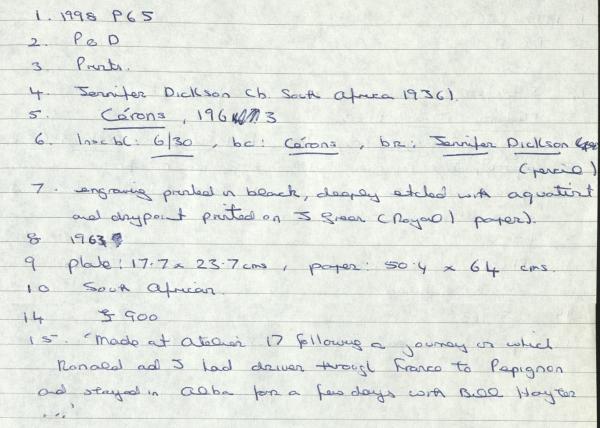 1. 1998 P65
2. P&D
3 Prints.
4. Jennifer Dickson (b. South Africa 1936).
5. Cérons, 1963
6. Insc bl: 6/30, bc: Cérons, br: Jennifer Dickson
(pencil)
7. engraving printed in black, deeply etched with aquatint
and drypoint printed on J Green (Royal) paper).
8 1963
9 plate: 17.7 x 23.7 cms, paper: 50.4 x 64 cms.
10 South African.
14 £ 900
15. 'Made at Atelier 17 following a journey on which
Ronald and I had driven through France to Pepignon
and stayed in Alba for a few days with Bill Hayter
...'